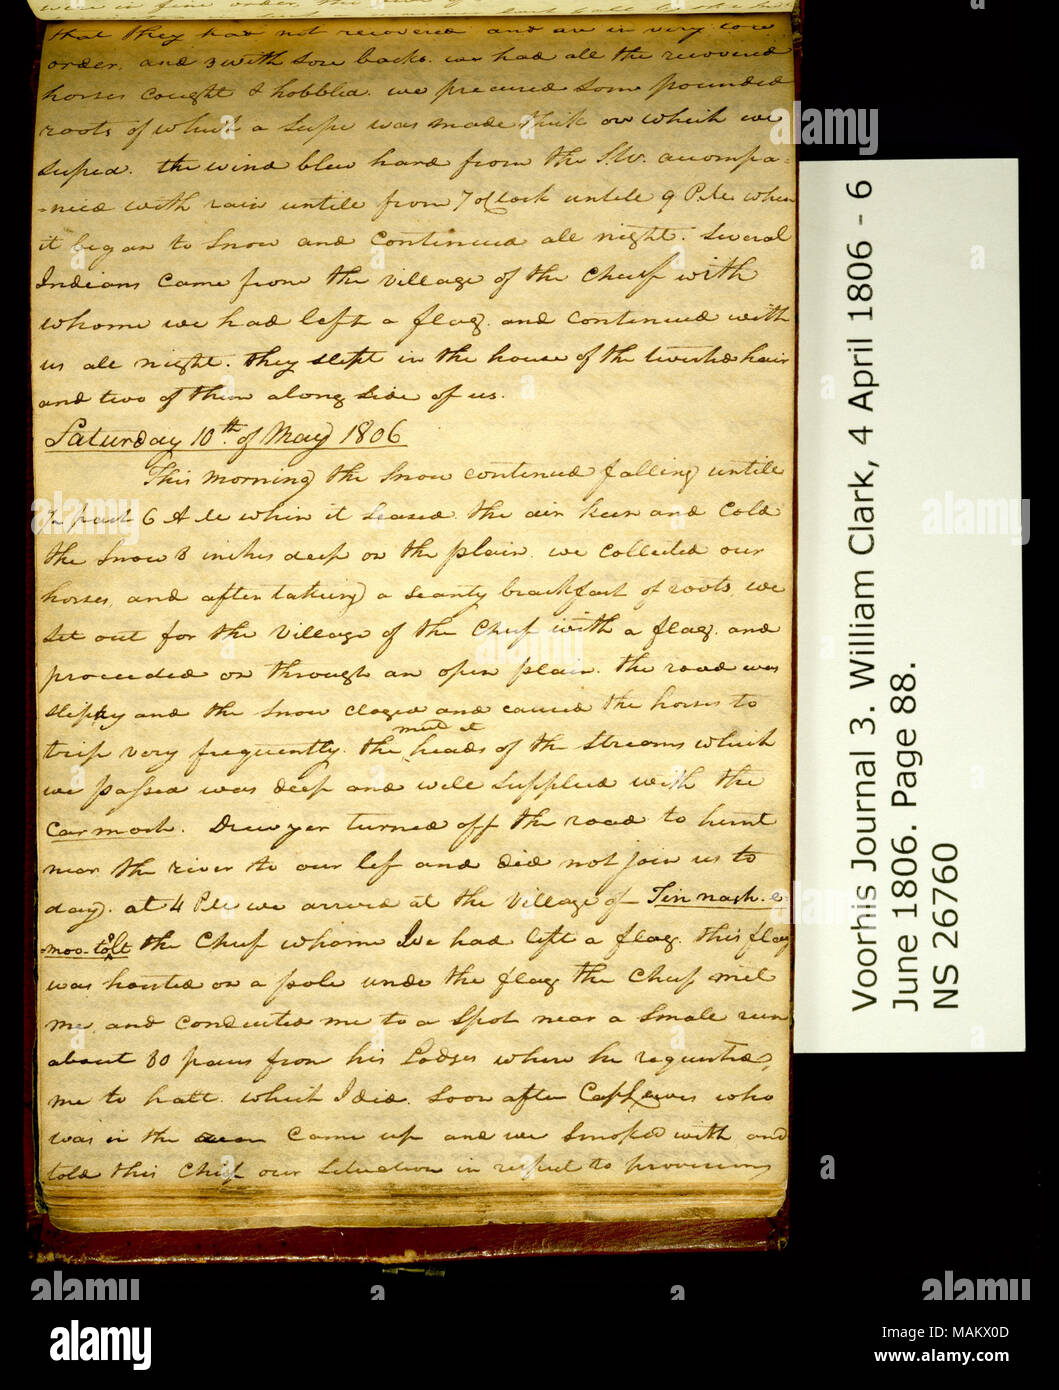 that they had not recovered and are in very low
order. and 3 with sore backs. we had all the recovered
horses cought & hobbled. we precured Some pounded
roots of which a supe was made thick on which we
suped. the wind blew hard from the S.W. accompa=
=nied with rain untile from 7 oClock untile 9 P.M. when
it began to Snow and continued all night. Several
Indians came from the village of the Chief with
whome we had left a flag. and continued with
us all night. they slept in the house of the twisted hair
and two of them along side of us.
Saturday 10th of May 1806
This morning the Snow continued falling untile
½ past 6 A M when it seased. the air keen and Cold
the Snow 8 inches deep on the plain. we collected our
horses, and after takeing a scanty brackfast of roots, we
Set out for the Village of the Chief with a flag. and
proceeded on through an open plain. the road was
slipry and the Snow cloged and caused the horses to
trip very frequently. the mud at heads of the Streams which
we passed was deep and well Supplied with the
Car mash. Drewyer turned off the road to hunt
near the river to our lef and did not join us to
day. at 4 P M we arrived at the Village of Tin nach-e-
moo-tolt the Chief whome We had left a flag. this flag
was hoisted on a pole unde the flag the Chief met
me and conducted me to a Spot near a Small run
about 80 paces from his Lodges where he requested
me to halt. which I did. Soon after Capt Lewis who
was in the rear Came up and we Smoked with and
told this Chief our Situation in respect to provisions
Voorhis Journal 3. William Clark, 4 April 1806 - 6
June 1806. Page 88.
NS 26760
alamy
Image ID: MAKX0D
www.alamy.com